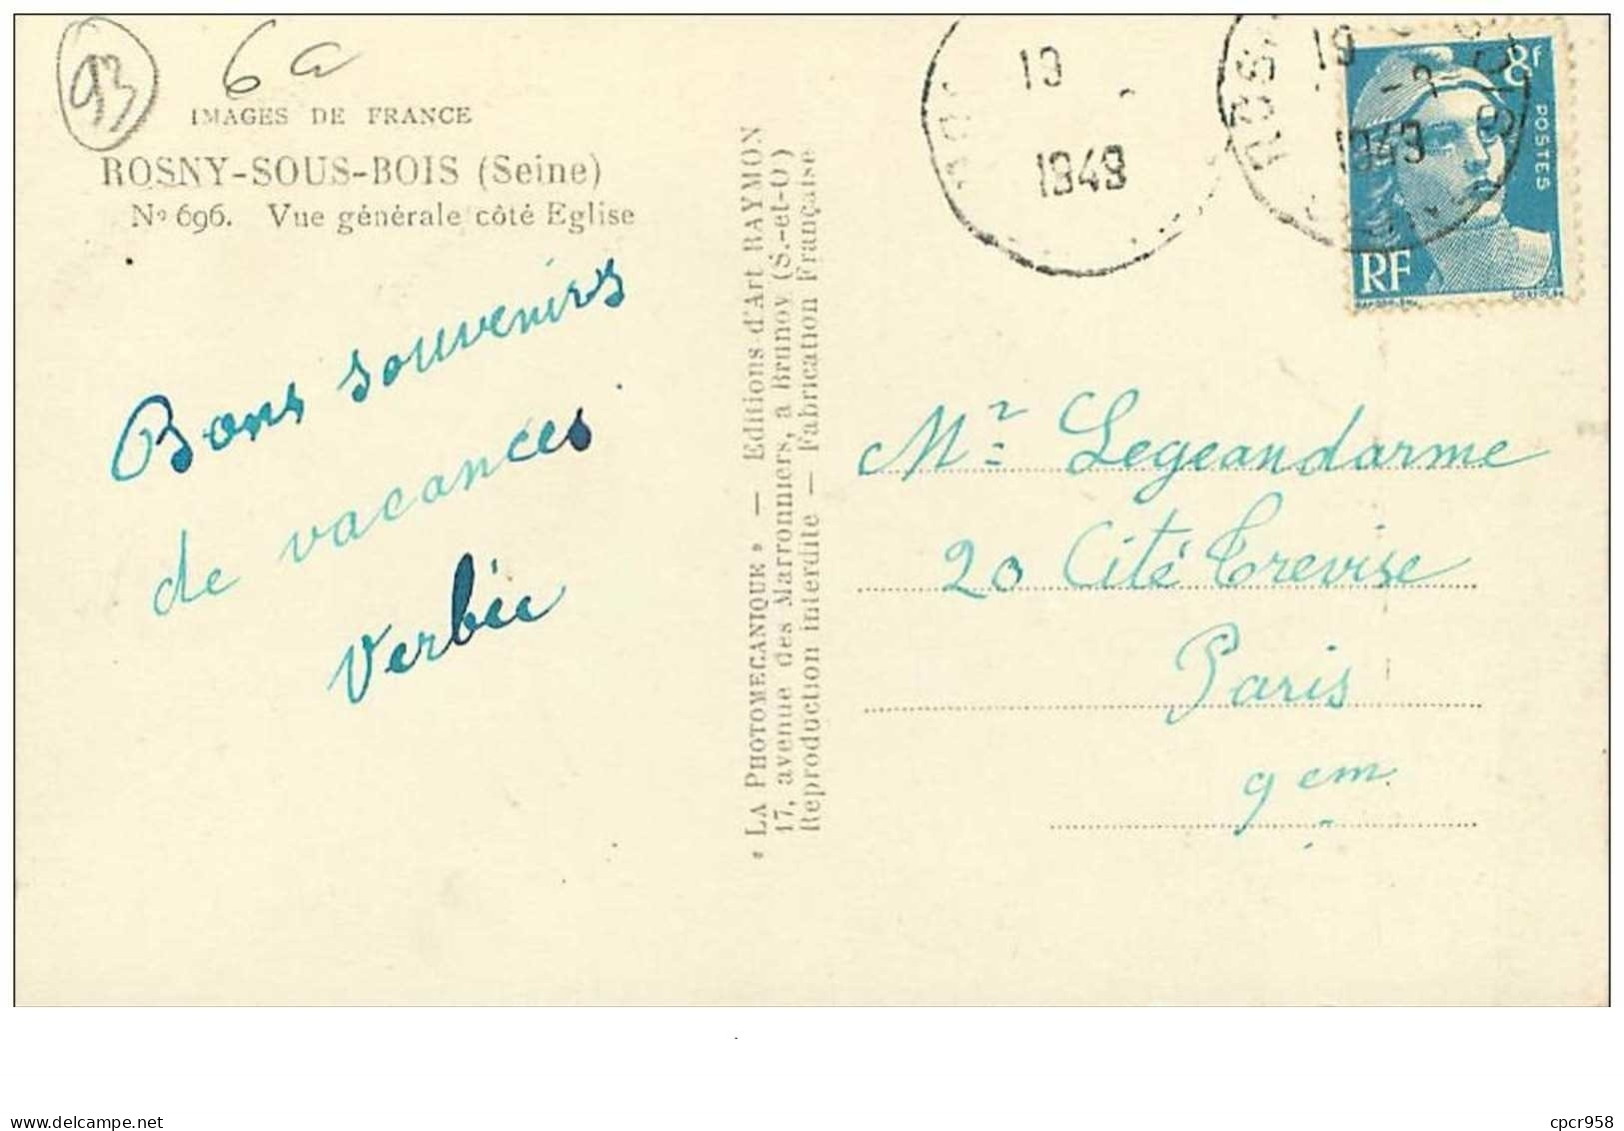 93
6a
IMAGES DE FRANCE
ROSNY-SOUS-BOIS (Seine)
Nº 696. Vue générale côté Eglise
Bons souvenirs
de vacances
« LA PHOTOMECANIQUE » — Editions d'Art RAYMON
17, avenue des Marronniers, a Brunoy (S.-et-O)
Reproduction interdite — Fabrication Française
19
1949
ROS
19
1949
8f
POSTES
RF
Mr Legeandarme
20 Cité Trevise
Paris
9em
delcampe.net
cpcr958